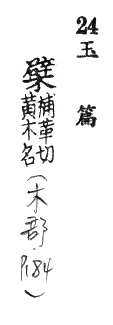 24玉篇
檗
補革切
黃木名
(木部.P184)